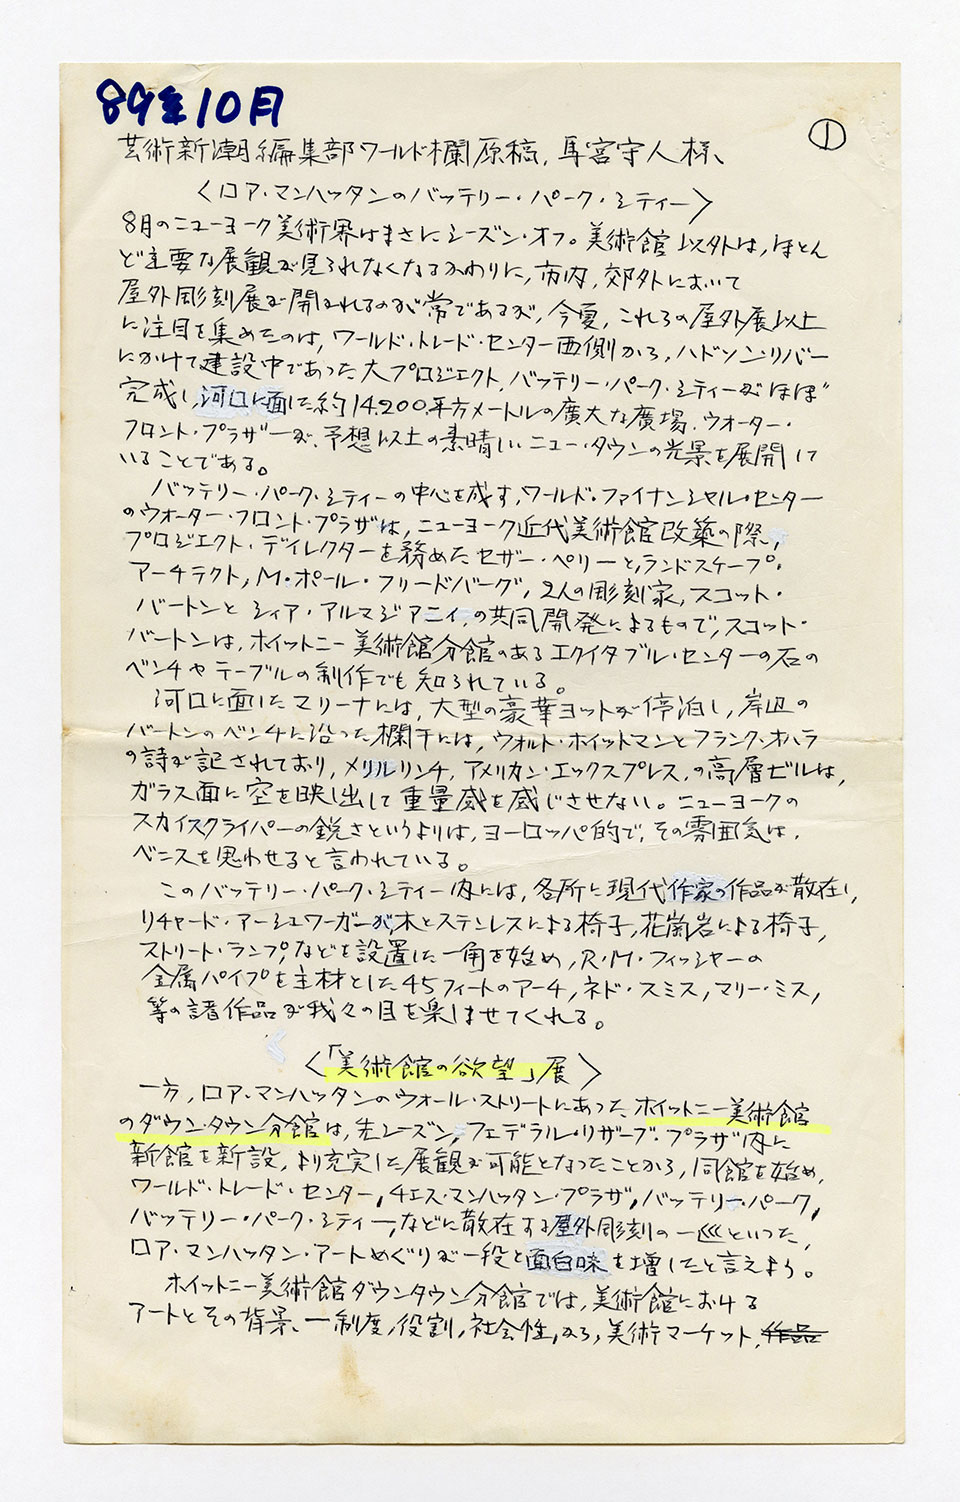 89年10月
①
芸術新潮編集部ワールド欄原稿、耳宮守人様、
〈ロア・マンハッタンのバッテリー・パーク・シティー〉
8月のニューヨーク美術界はまさにシーズン・オフ。美術館以外は、ほとん
ど主要な展観が見られなくなるかわりに、市内、郊外において
屋外彫刻展が開かれるのが常であるが、今夏、これらの屋外展以上
に注目を集めたのは、ワールド・トレード・センター西側から、ハドソン・リバー
にかけて建設中であった大プロジェクト、バッテリー・パーク・シティーがほぼ
完成し、河口に面した約14,200平方メートルの廣大な廣場、ウオーター・
フロント・プラザーが、予想以上の素晴しいニュー・タウンの光景を展開して
いることである。
バッテリー・パーク・シティーの中心を成す、ワールド・ファイナンシャル・センター
のウォーター・フロント・プラザは、ニューヨーク近代美術館改築の際、
プロジェクト・デイレクターを務めたセザー・ペリーと、ランドスケープ・
アーチテクト、M・ポール・フリードバーグ、2人の彫刻家、スコット・
バートンとシィア・アルマジアニィ、の共同開発によるもので、スコット・
バートンは、ホイットニー美術館分館のあるエクイタブル・センターの石の
ベンチやテーブルの制作でも知られている。
河口に面したマリーナには、大型の豪華ヨットが停泊し、岸辺の
バートンのベンチに沿った欄干には、ウォルト・ホイットマンとフランク・オハラ
の詩が記されており、メリルリンチ、アメリカン・エックスプレス、の高層ビルは、
ガラス面に空を映し出して重量感を感じさせない。ニューヨークの
スカイスクライパーの鋭さというよりは、ヨーロッパ的で、その雰囲気は、
ベニスを思わせると言われている。
このバッテリー・パーク・シティー内には、各所に現代作家の作品が散在し、
リチャード・アーシュワーガーが、木とステンレスによる椅子、花崗岩による椅子、
ストリート・ランプ、などを設置した一角を始め、R・M・フィッシャーの
金属パイプを主材とした45フィートのアーチ、ネド・スミス、マリー・ミス、
等の諸作品が我々の目を楽しませてくれる。
〈「美術館の欲望」展〉
一方、ロア・マンハッタンのウォール・ストリートにあったホイットニー美術館
のダウン・タウン分館は、先シーズン、フェデラル・リザーブ・プラザ内に
新館を新設、より充実した展観が可能となったことから、同館を始め、
ワールド・トレード・センター、チエス・マンハッタン・プラザ、バッテリー・パーク、
バッテリー・パーク・シティー、などに散在する屋外彫刻の一巡といった、
ロア・マンハッタン・アートめぐりが一段と面白味を増したと言えよう。
ホイットニー美術館ダウンタウン分館では、美術館における
アートとその背景、一制度、役割、社会性、から、美術マーケット、作品